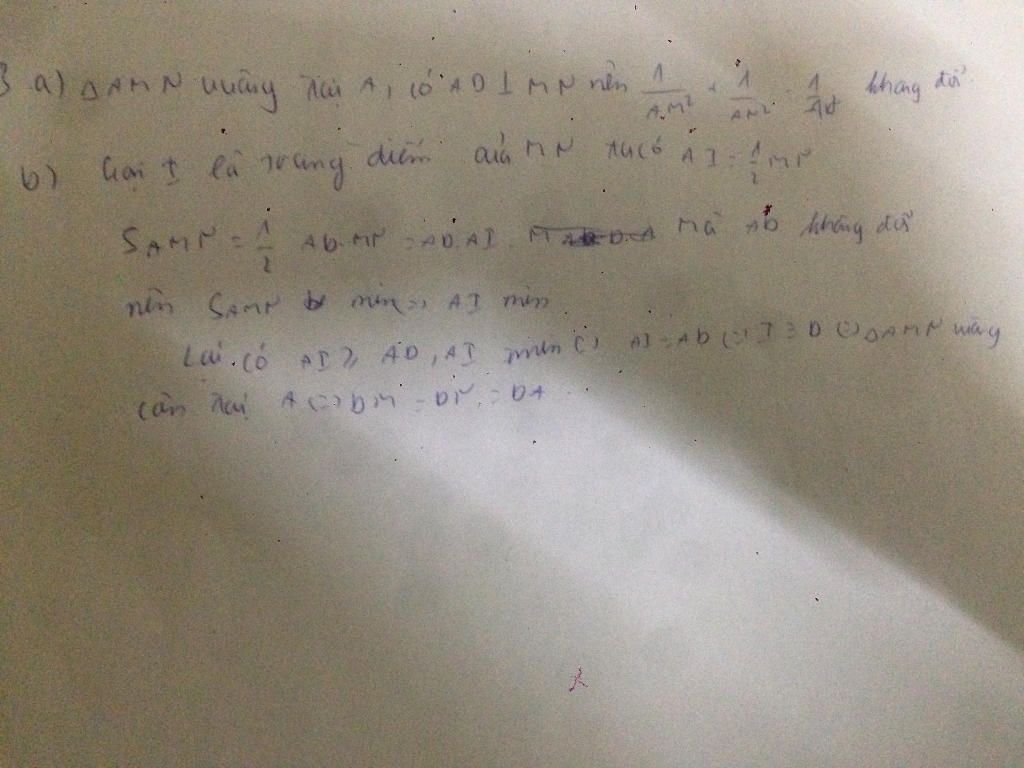 3 a) Δ AMN vuông tại A, có AD ⊥ MN nên 1/AM² + 1/AN² = 1/AD² không đổi
b) Gọi I là trung điểm của MN ta có AI = 1/2 MN
SAMN = 1/2 AD.MN = AD.AI. Mà AD không đổi
nên SAMN min => AI min.
Lại có AI ≥ AD, AI min (=) AI = AD (=) I ≡ D (=) Δ AMN vuông
cân tại A (=) DM = DN = DA.